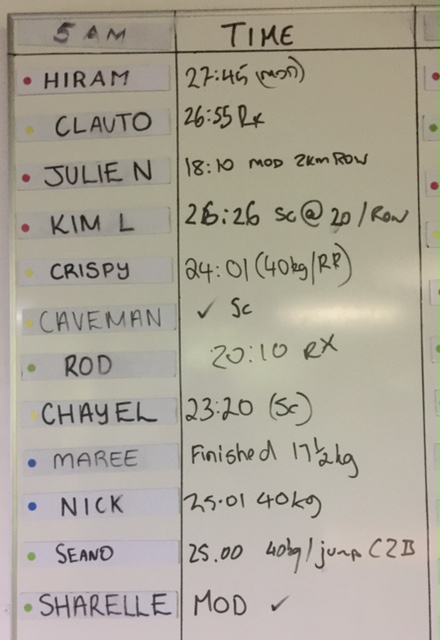 5 AM TIME
HIRAM 27:45 (mod)
CLAUTO 26:55 Rx
JULIE N 18:10 MOD 2km ROW
KIM L 26:26 SC @ 20 / Row
CRISPY 24:01 (40kg/RR)
CAVEMAN ✓ Sc
ROD 20:10 RX
CHAYEL 23:20 (Sc)
MAREE Finished 17 1/2 kg
NICK 25.01 40kg
SEANO 25.00 40kg/jump C2B
SHARELLE MOD ✓